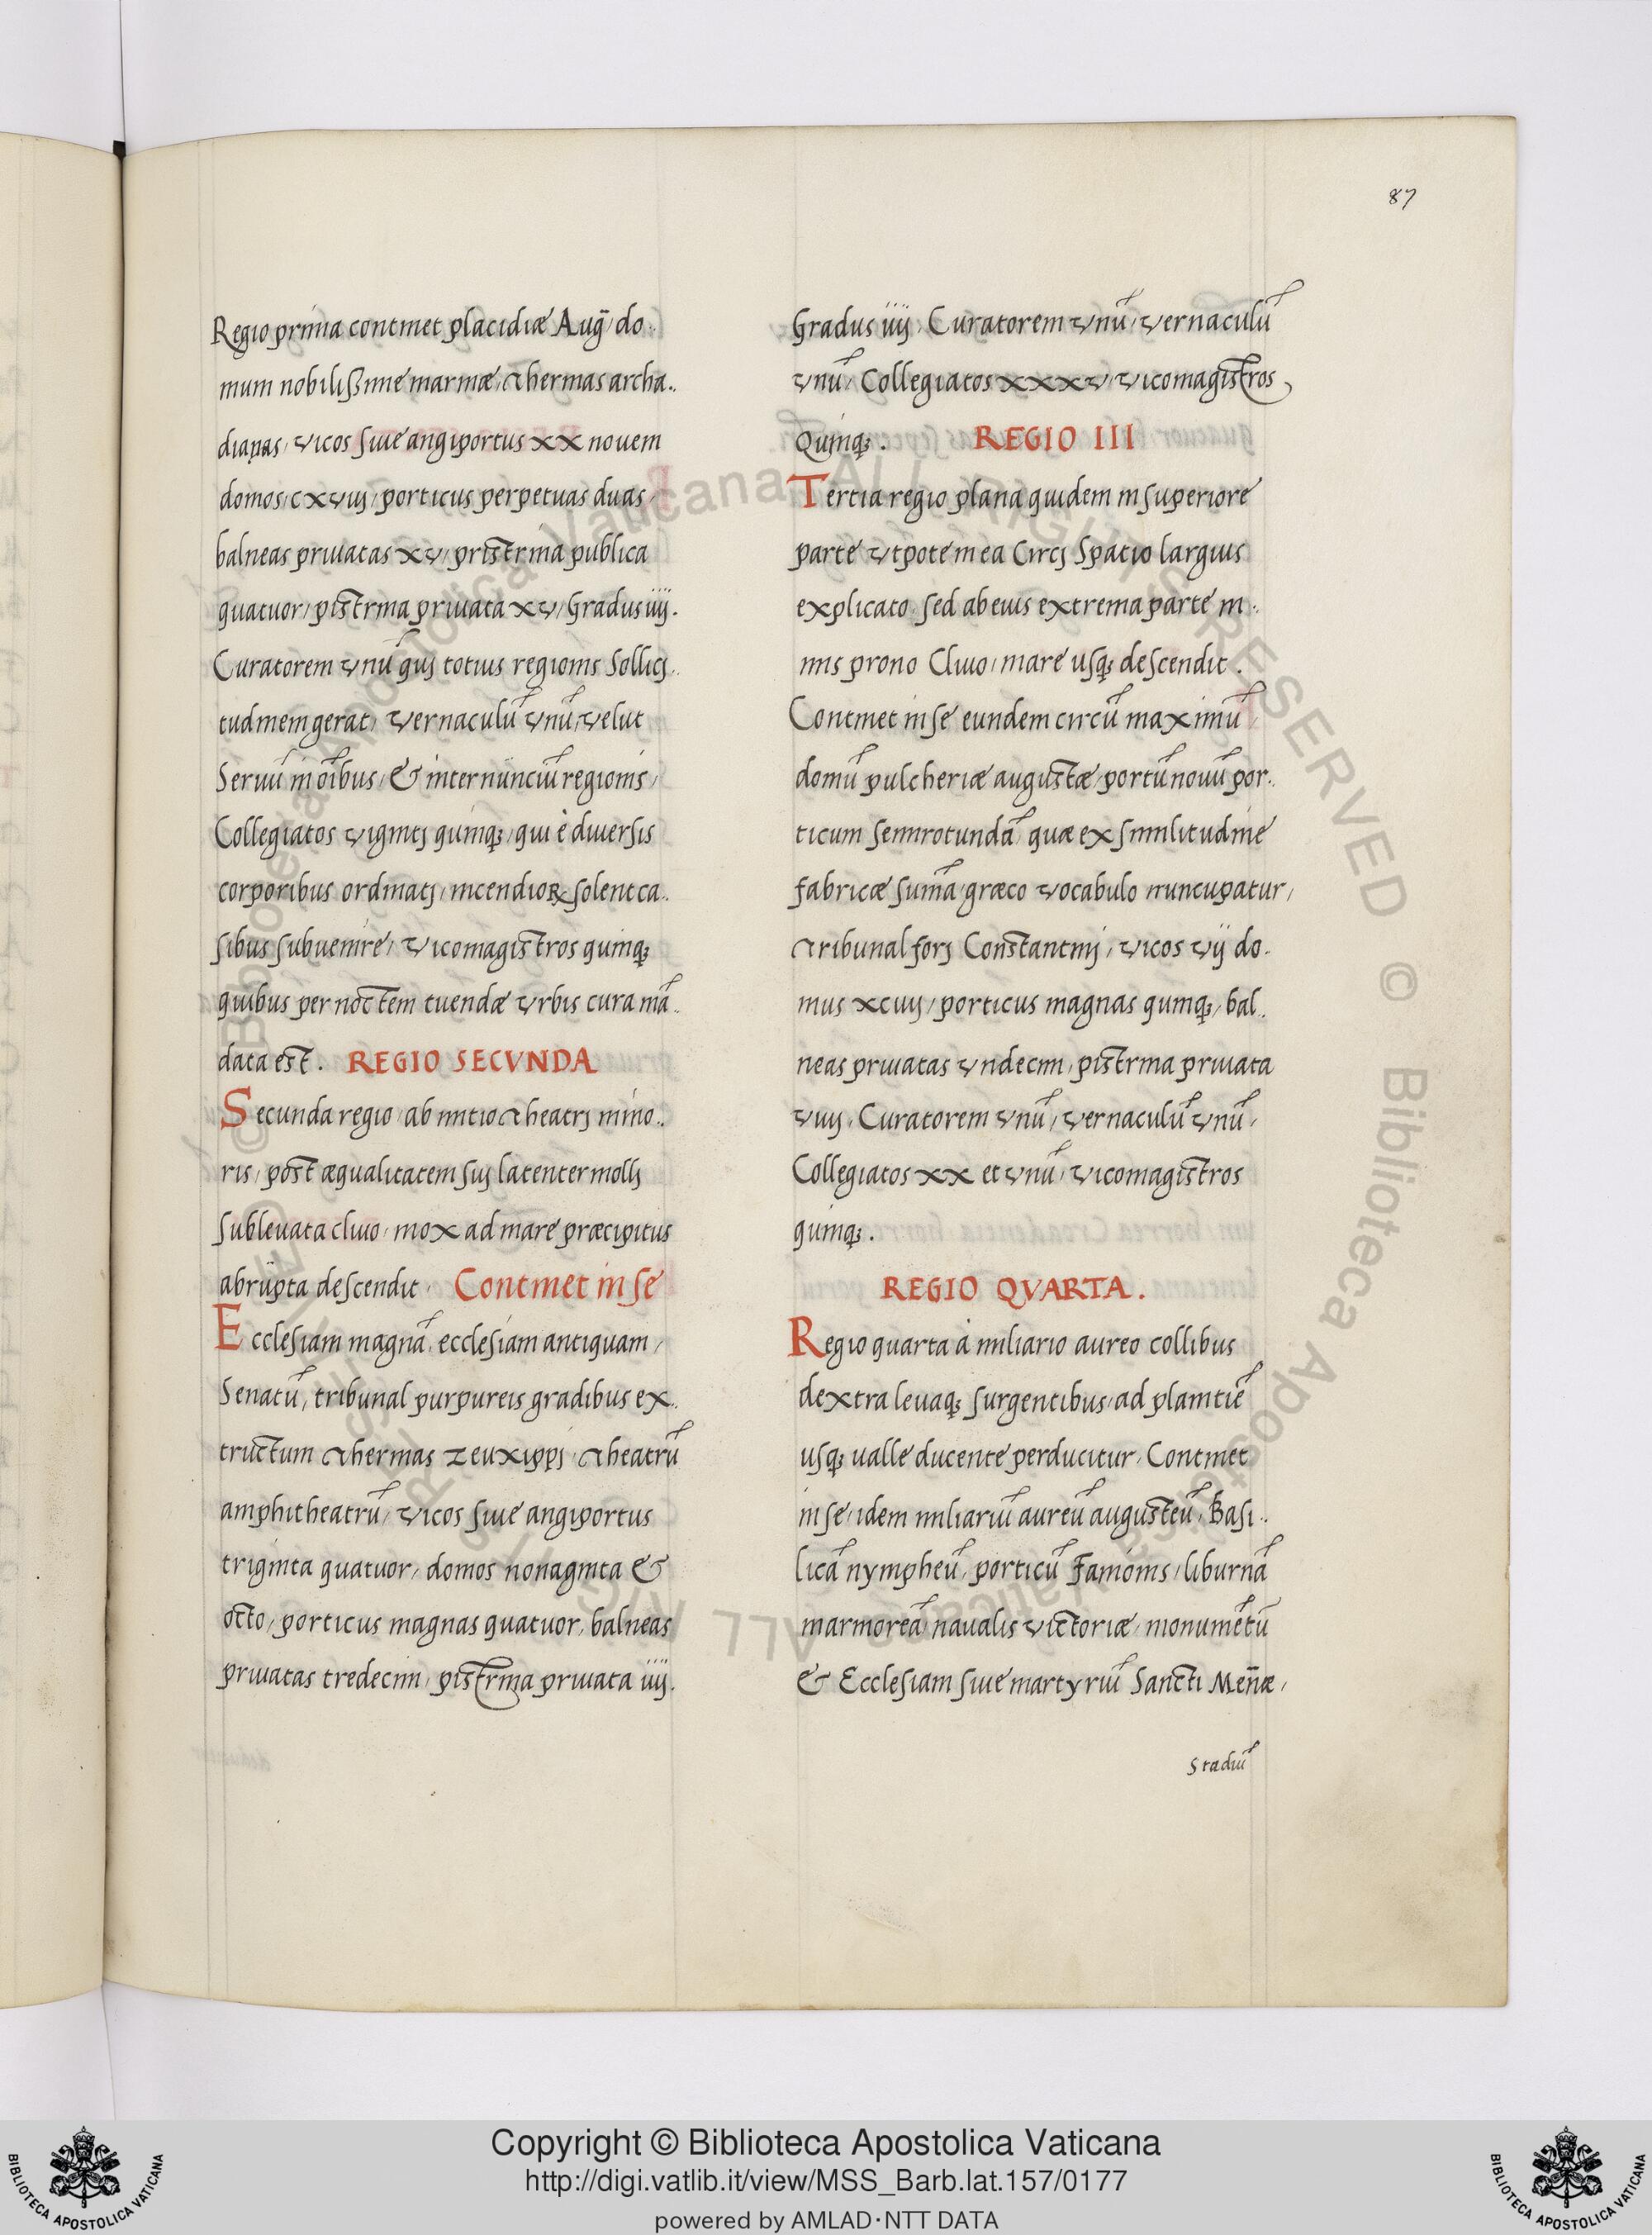 87
Regio prima continet placidiæ Aug̃ do..
mum nobilissime marinæ, thermas archa..
dianas, vicos siue angiportus xx novem
domos, cxviij, porticus perpetuas duas,
balneas priuatas xv, pristrina publica
quatuor, pistrina priuata xv, Gradus iiij.
Curatorem vnũ qui totius regionis Sollici..
tudinem gerat, vernaculũ vnũ, velut
Seruũ in oĩbus, & internunciũ regionis,
Collegiatos viginti quinq;, qui è diuersis
corporibus ordinati, incendioꝝ solent ca..
sibus subuenire, vicomagistros quinq;
quibus per noctem tuendæ vrbis cura mã..
data est. REGIO SECVNDA
Secunda regio, ab initio theatri mino..
ris, post æqualitatem sui latenter molli
subleuata cliuo, mox ad mare præcipitus
abrupta descendit. Continet in se
Ecclesiam magnã, ecclesiam antiquam,
Senatũ, tribunal purpureis gradibus ex..
tructum thermas zeuxippi, theatrũ
amphitheatrũ, vicos siue angiportus
triginta quatuor, domos nonaginta &
octo, porticus magnas quatuor, balneas
priuatas tredecim, pistrina priuata iiij.
Gradus iiij, Curatorem vnũ, vernaculũ
vnũ, Collegiatos xxxv, vicomagistros
Quinq;. REGIO III
Tertia regio plana quidem in superiore
parte vtpote in ea Circi Spatio largius
explicato, sed ab eius extrema parte ni..
mis prono Cliuo, mare usq; descendit.
Continet in se eundem circũ maximũ,
domũ pulcheriæ augustæ, portũ nouũ por..
ticum semirotundã, quæ ex similitudine
fabricæ sumã, græco vocabulo nuncupatur,
tribunal fori Constantini, vicos vij do..
mus xciiij, porticus magnas quinq;, bal..
neas priuatas vndecim, pistrina priuata
viij, Curatorem vnũ, vernaculũ vnũ,
Collegiatos xx et vnũ, vicomagistros
quinq;.
REGIO QVARTA.
Regio quarta à miliario aureo collibus
dextra leuaq; surgentibus, ad planitiẽ
usq; ualle ducente perducitur, Continet
in se, idem miliariũ aureũ augusteũ, Basi..
licã nympheũ, porticũ Fanionis, liburnã
marmoreã, naualis victoriæ, monumẽtũ
& Ecclesiam siue martyriũ Sancti Meñæ,
Stadiũ
Copyright © Biblioteca Apostolica Vaticana
http://digi.vatlib.it/view/MSS_Barb.lat.157/0177
powered by AMLAD·NTT DATA
BIBLIOTECA APOSTOLICA VATICANA
BIBLIOTECA APOSTOLICA VATICANA